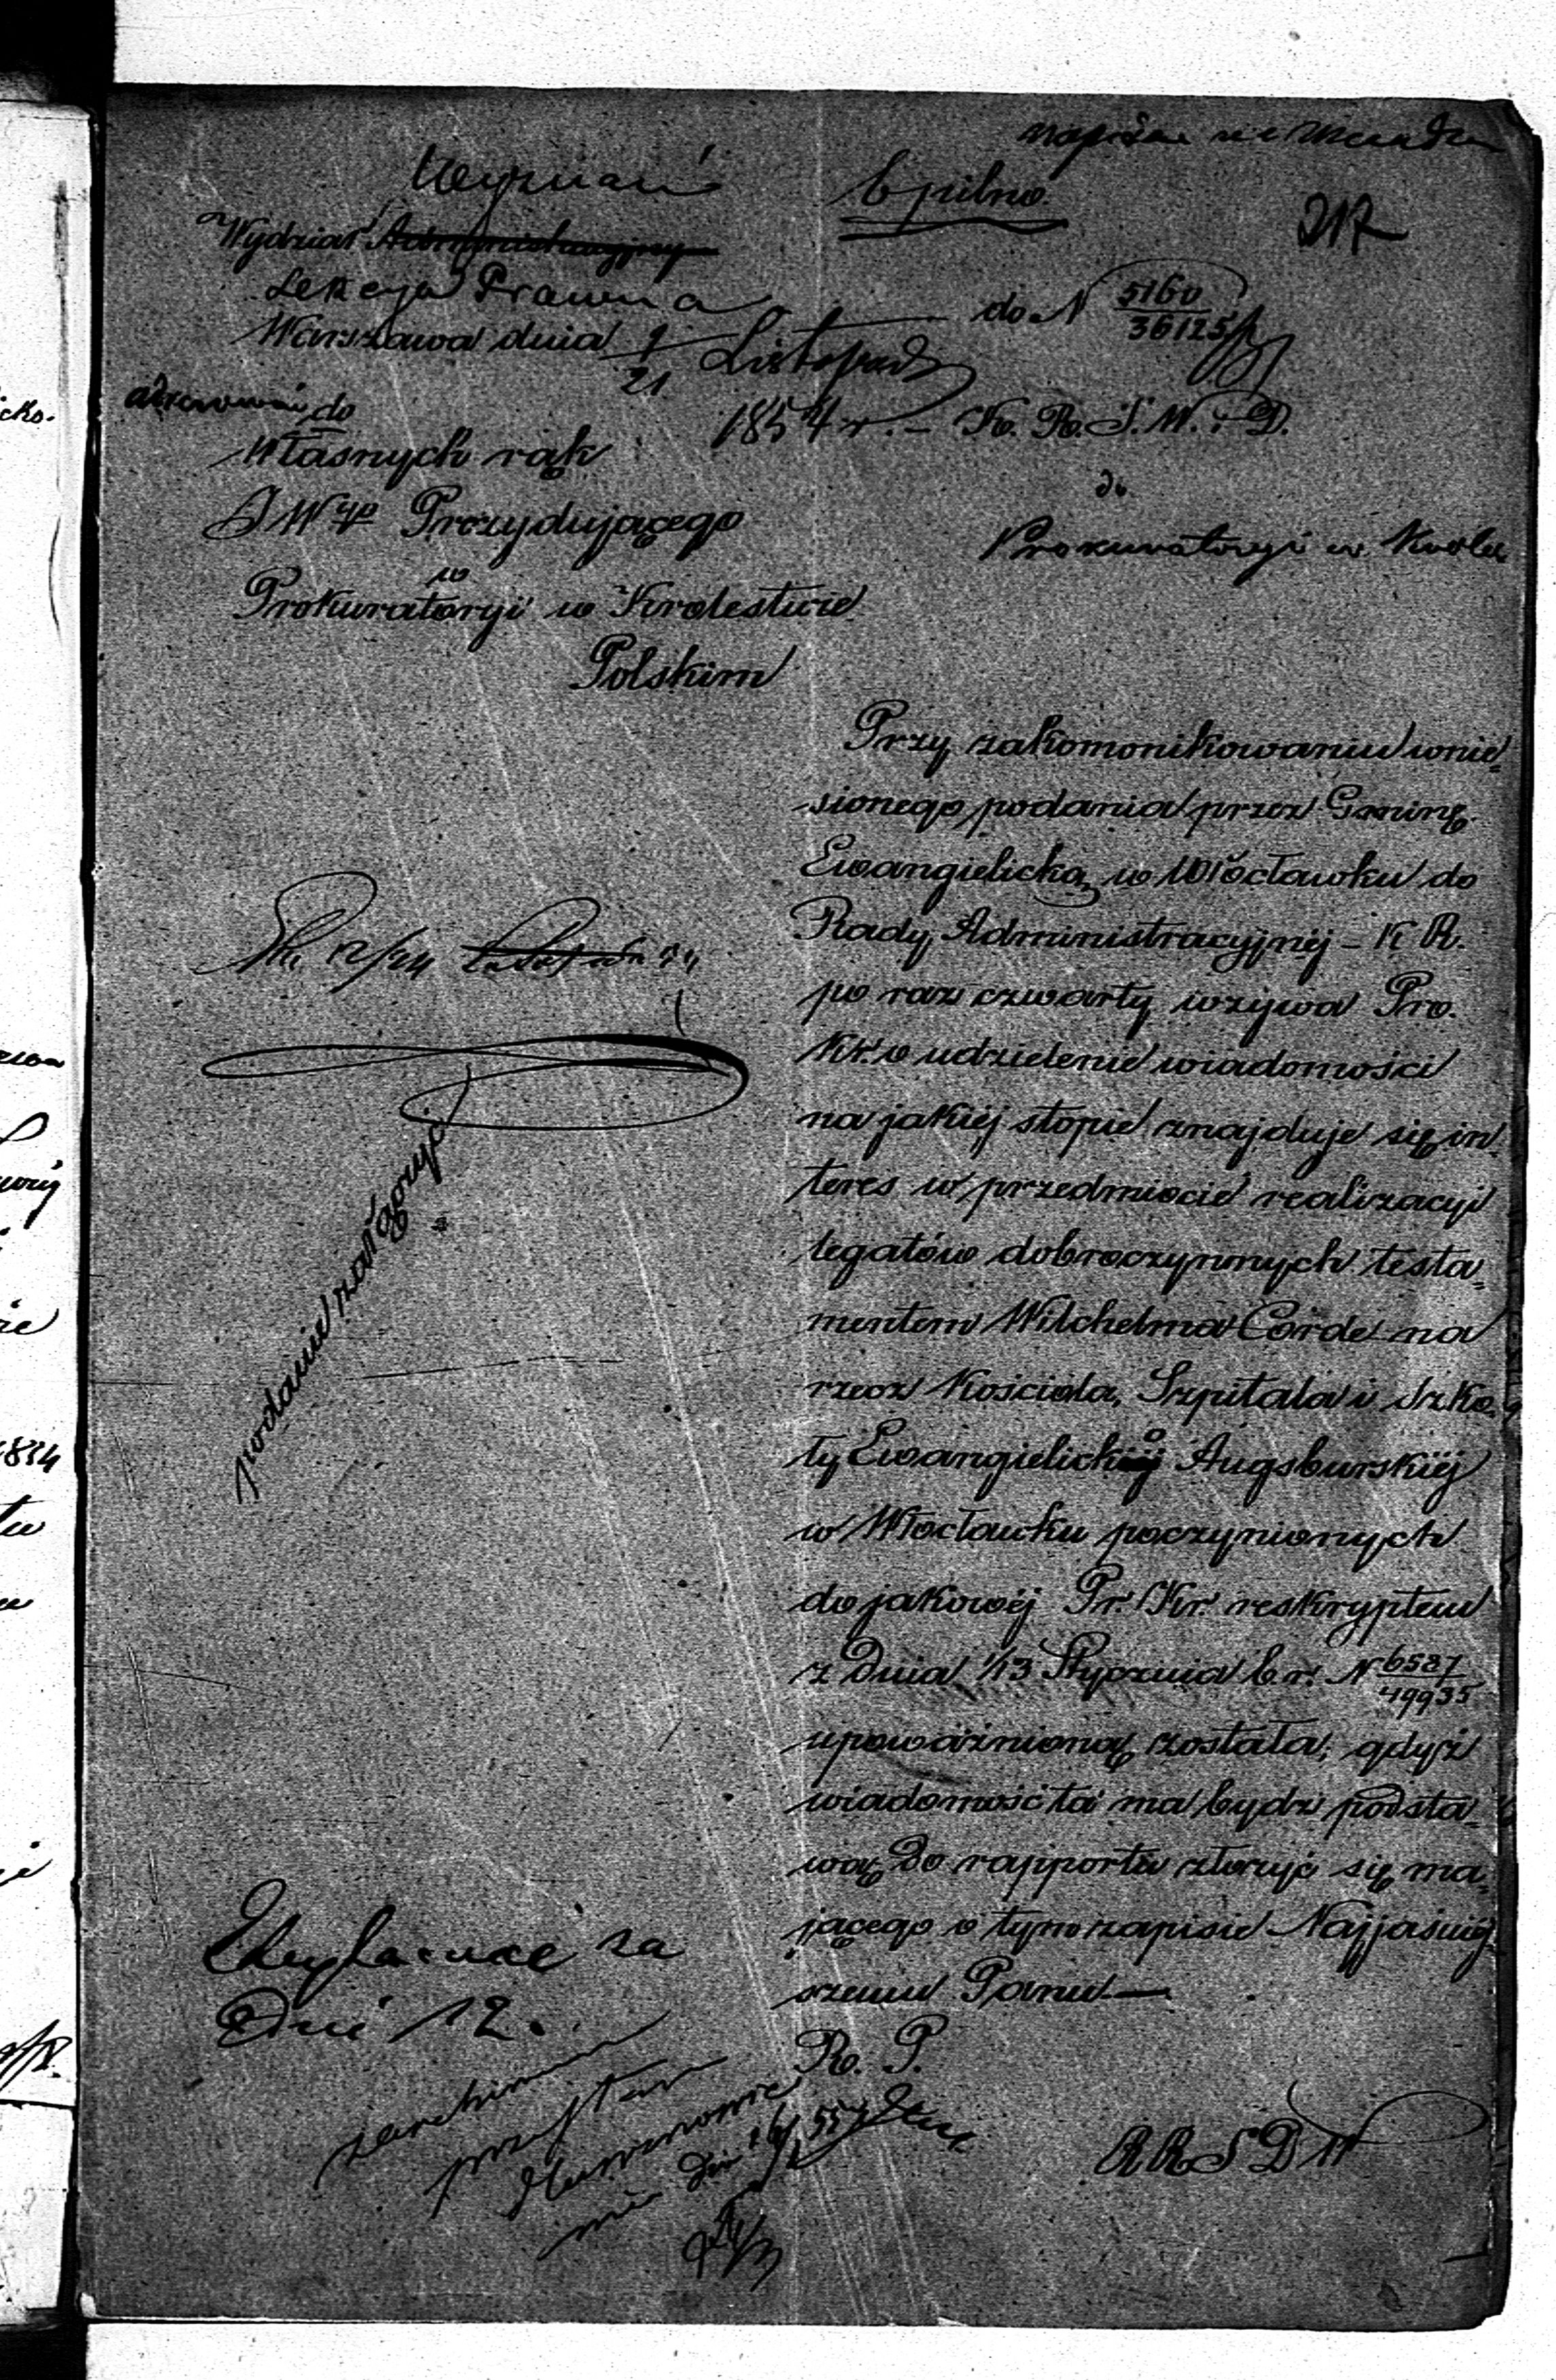 Wyznań
b pilno
217
Wydział Administracyjny
Sekcya Prawna
do N 5160/36125
Warszawa dnia 9/21 Listopada
1854 r. – K. R. S. W. i D.
do
własnych rąk
JW go Prezydującego
w
Prokuratoryi w Krolestwie
Polskim
do
Prokuratoryi w Krolu
Przy zakomonikowaniu wnie-
sionego podania przez Gminę
Ewangielicką w Włocławku do
Rady Administracyjnéj – K R.
po raz czwarty wzywa Pro.
Kr. o udzielenie wiadomości
na jakiéj stopie znajduje się in-
teres w przedmiocie realizacyi
legatów dobroczynnych testa-
mentem Wilchelma Corde na
rzecz Kościoła, Szpitala i Szko-
ły Ewangielicko Augsburskiéj
w Włocławku poczynionych
do jakowéj Pr. Kr. reskryptem
z Dnia 1/13 Stycznia b.r. N 6587/49935
upoważnioną została, gdyż
wiadomość ta ma bydz podsta-
wą do rapportu złożyć się ma-
jącego o tym zapisie Najjaśniéj-
szemu Panu —
podanie załączyć
za
Dni 12.
R. P.